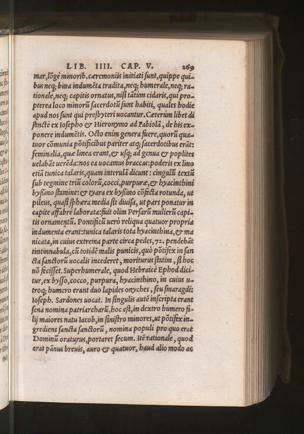 LIB. IIII. CAP. V. 269
mar, lōgè minorib. cæremoniis initiati sunt, quippe qui-
bus neq; bina indumēta tradita, neq; humerale, neq; ra-
tionale, neq; capitis ornatus, nisi tātùm cidaris, qui pro-
pterea loco minorū sacerdotū sunt habiti, quales hodie
apud nos sunt qui presbyteri uocantur. Cæterùm libet di
stinctè ex Iosepho & Hieronymo ad Fabiolā, de his ex-
ponere indumētis. Octo enim genera fuere, quorū qua-
tuor cōmunia pōtificibus pariter atq; sacerdotibus erāt:
feminalia, quæ linea erant, & usq; ad genua & poplites
uelabāt uerēda: nos ea uocamus braccas: poderis ex lino
etiā tunica talaris, quam interulā dicunt: cingulū textū
sub tegmine triū colorū, cocci, purpuræ, & hyacinthini
byssino stamine: & tiara ex byssino cōfecta rotunda, ut
pileus, quasi sphæra media sit diuisa, ut pars ponatur in
capite affabrè laborata: fuit olim Persarū mulierū capi-
tis ornamentū. Pontificū uerò reliqua quatuor propria
indumenta erant: tunica talaris tota hyacinthina, & ma
nicata, in cuius extrema parte circa pedes, 72. pendebāt
tintinnabula, cū totidē malis punicis, quò pōtifex in san
cta sanctorū uocalis incederet, moriturus statim, si hoc
nō fecisset. Superhumerale, quod Hebraicè Ephod dici-
tur, ex bysso, cocco, purpura, hyacinthino, in cuius u-
troq; humero erant duo lapides onyches, seu smaragdi:
Ioseph. Sardones uocat. In singulis autē inscripta erant
sena nomina patriarcharū, hoc est, in dextro humero fi-
lij maiores natu Iacob, in sinistro minores, ut pōtifex in-
grediens sancta sanctorū, nomina populi pro quo erat
Dominū oraturus, portaret secum. Itē rationale, quod
erat pānus breuis, auro & quatuor, haud alio modo ac